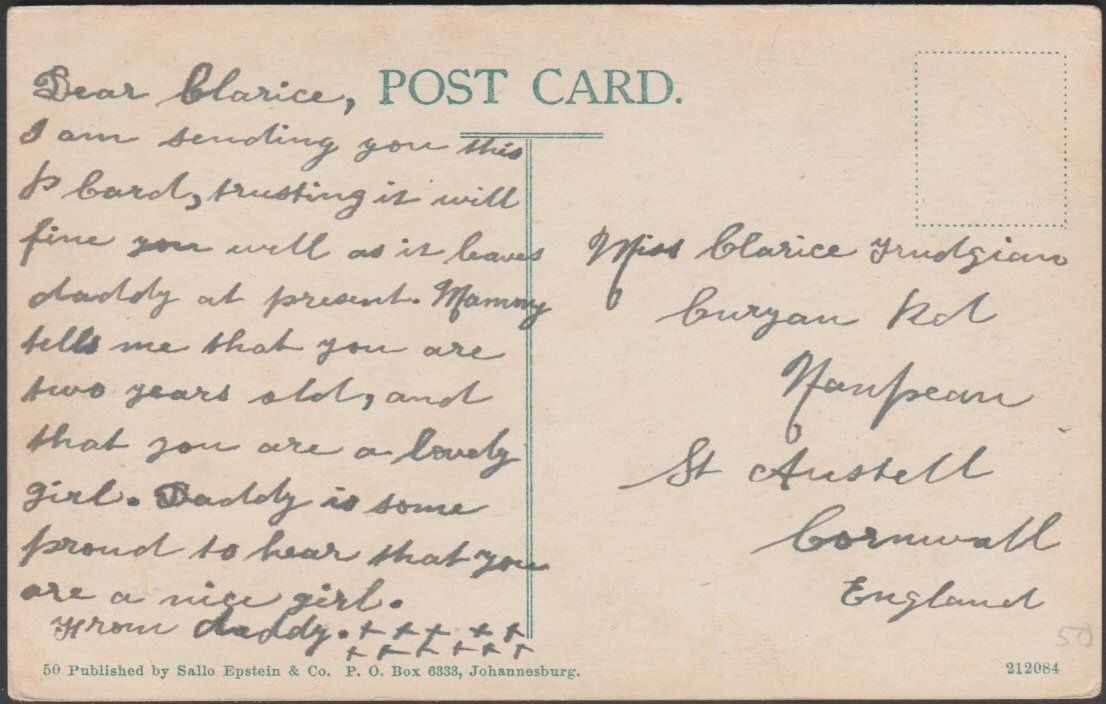 Dear Clarice,
I am sending you this
P Card, trusting it will
fine you well as it leaves
daddy at present. Mammy
tells me that you are
two years old, and
that you are a lovely
girl. Daddy is some
proud to hear that you
are a nice girl.
From daddy. x x x x x
x x x x x x
POST CARD.
Miss Clarice Trudgian
Curyan Rd
Nanpean
St Austell
Cornwall
England
50
50 Published by Sallo Epstein & Co. P. O. Box 6333, Johannesburg.
212084